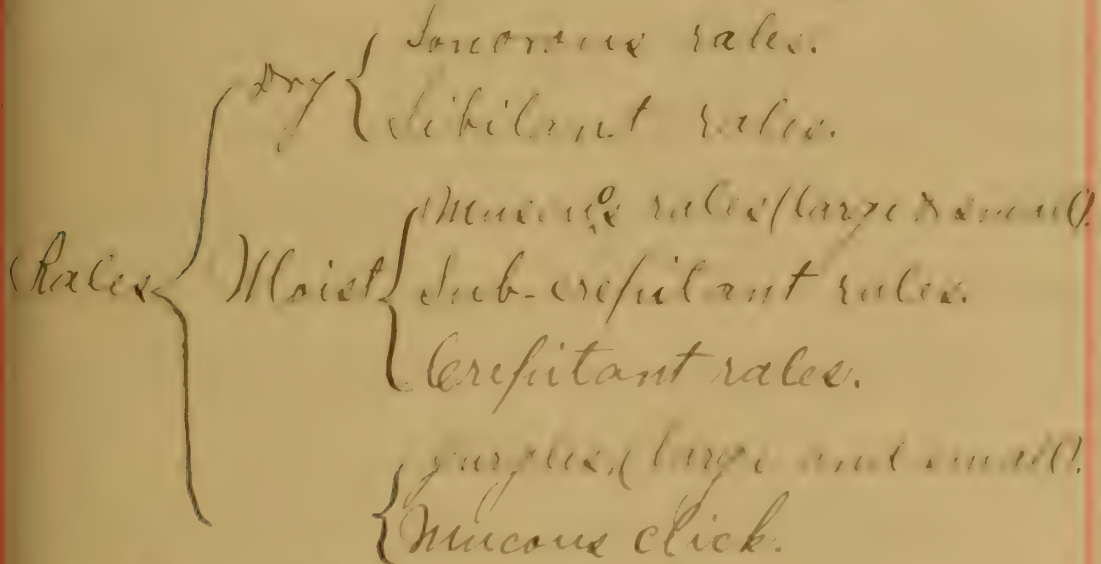 Dry { Sonorous rales.
Sibilant rales.
Rales { Moist { Mucous rales (large & small).
Sub-crepitant rales.
Crepitant rales.
{ gurgles, (large and small).
Mucous click.